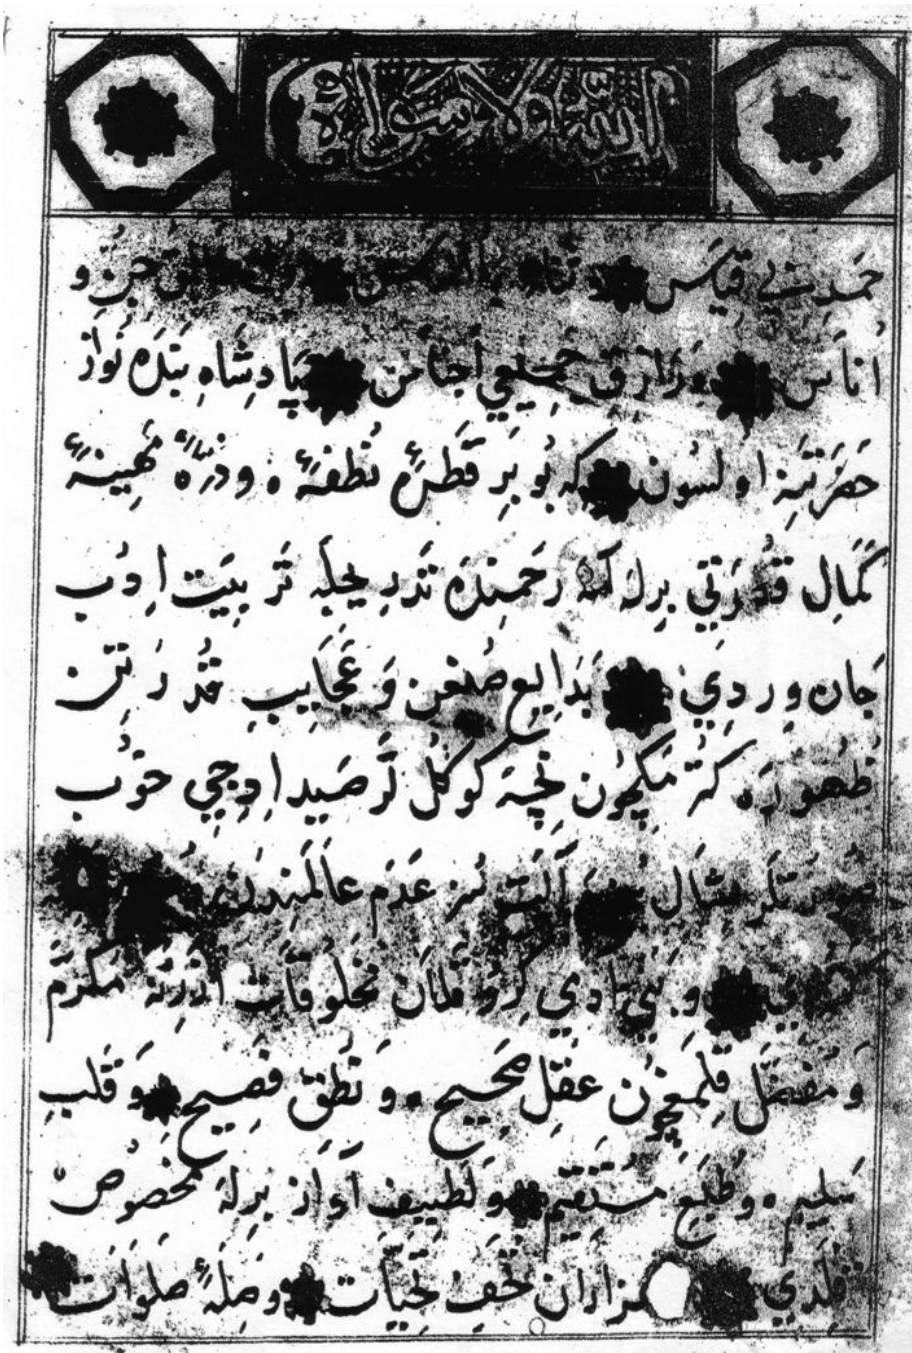 الله ولا سواه
حمد بي قياس و جن و
اناس و رازق جميع اجناس پادشاه بنده نواز
حضرتنه اولسون كه بو بر قطرۀ نطفۀ و ذرۀ مهينۀ
كمال قدرتي برله رحمنده تدريجيله تربيت ادب
جان وردي بدايع صنعن و عجايب قدرتن
ظهوره كترمكچون نچه كوكللر صيد اديجي خوب
صورتلر مثال آلت سز عدم عالمندن
و بني ادمي كرو قلان مخلوقات اوزرنه مكرم
و مفضل قلمغچون عقل صحيح و نطق فصيح و قلب
سليم و طبع مستقيم و لطيف آواز برله مخصوص
قلدي هزاران تحف تحيات و صلۀ صلوات